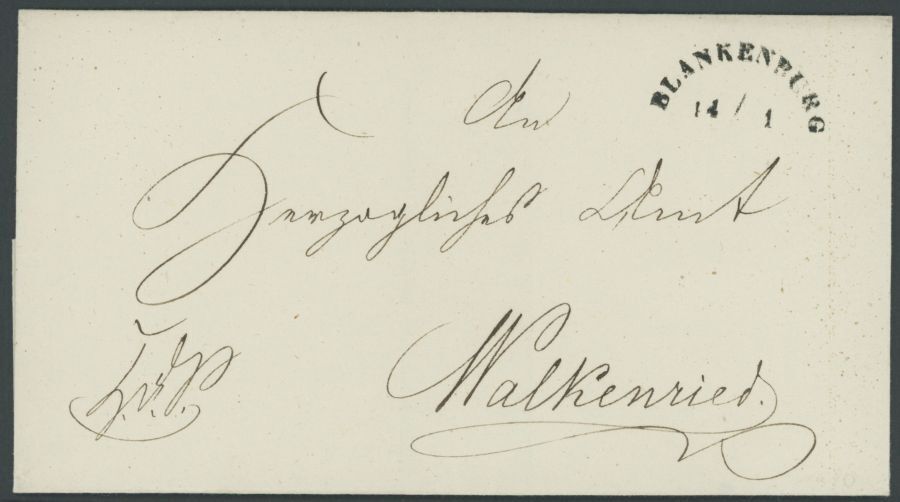 BLANKENBURG
14 / 1
An
Herzogliches Amt
Walkenried.